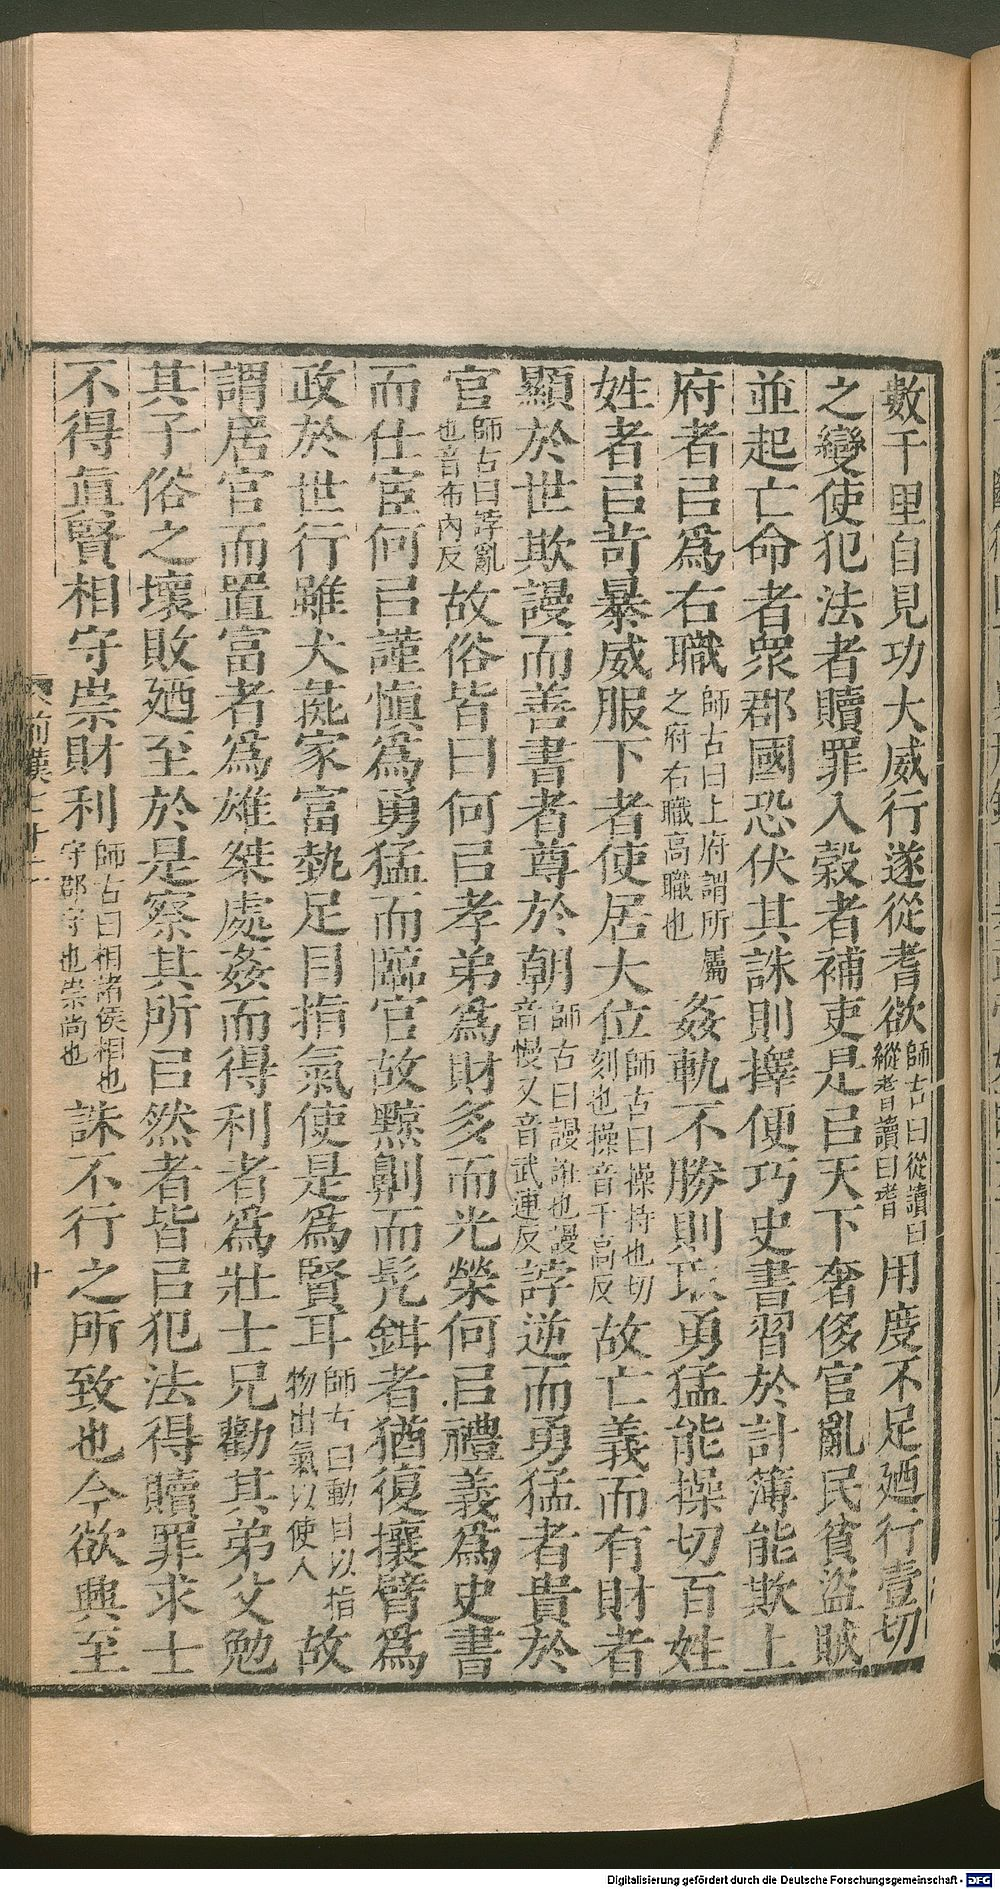 數千里自見功大威行遂從耆欲師古曰從讀曰縱耆讀曰嗜用度不足廼行壹切
之變使犯法者贖罪入穀者補吏是㠯天下奢侈官亂民貧盜賊
並起亡命者衆郡國恐伏其誅則擇便巧史書習於計簿能欺上
府者㠯爲右職師古曰上府謂所屬之府右職高職也姦軌不勝則取勇猛能操切百姓
姓者㠯苛暴威服下者使居大位師古曰操持也切刻也操音千高反故亡義而有財者
顯於世欺謾而善書者尊於朝師古曰謾誑也謾音慢又音武連反誖逆而勇猛者貴於
官師古曰誖亂也音布內反故俗皆曰何㠯孝弟爲財多而光榮何㠯禮義爲史書
而仕宦何㠯謹慎爲勇猛而臨官故黥劓而髡鉗者猶復攘臂爲
政於世行雖犬彘家富埶足目指氣使是爲賢耳師古曰動目以指物出氣以使人故
謂居官而置富者爲雄桀處姦而得利者爲壯士兄勸其弟父勉
其子俗之壞敗廼至於是察其所㠯然者皆㠯犯法得贖罪求士
不得眞賢相守崇財利師古曰相諸侯相也守郡守也崇尚也誅不行之所致也今欲興至
前漢七十二
十
Digitalisierung gefördert durch die Deutsche Forschungsgemeinschaft - DFG